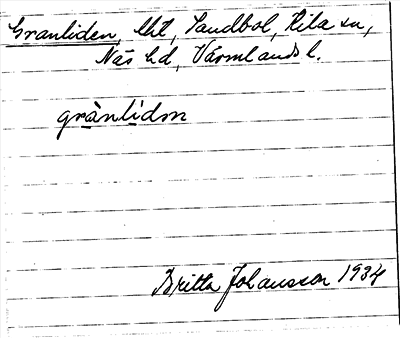 Granliden, lht, Sandbol, Kila sn,
Näs hd, Värmlands l.
grànlídṃ
Britta Johansson 1934